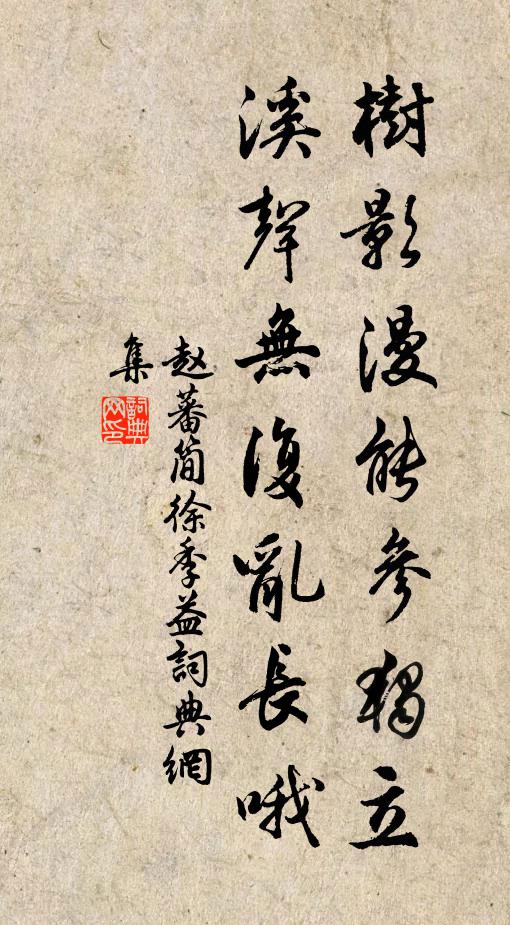 樹影漫能參獨立
溪聲無復亂長哦
赵蕃簡徐季益詞典網
集
詞典
网印